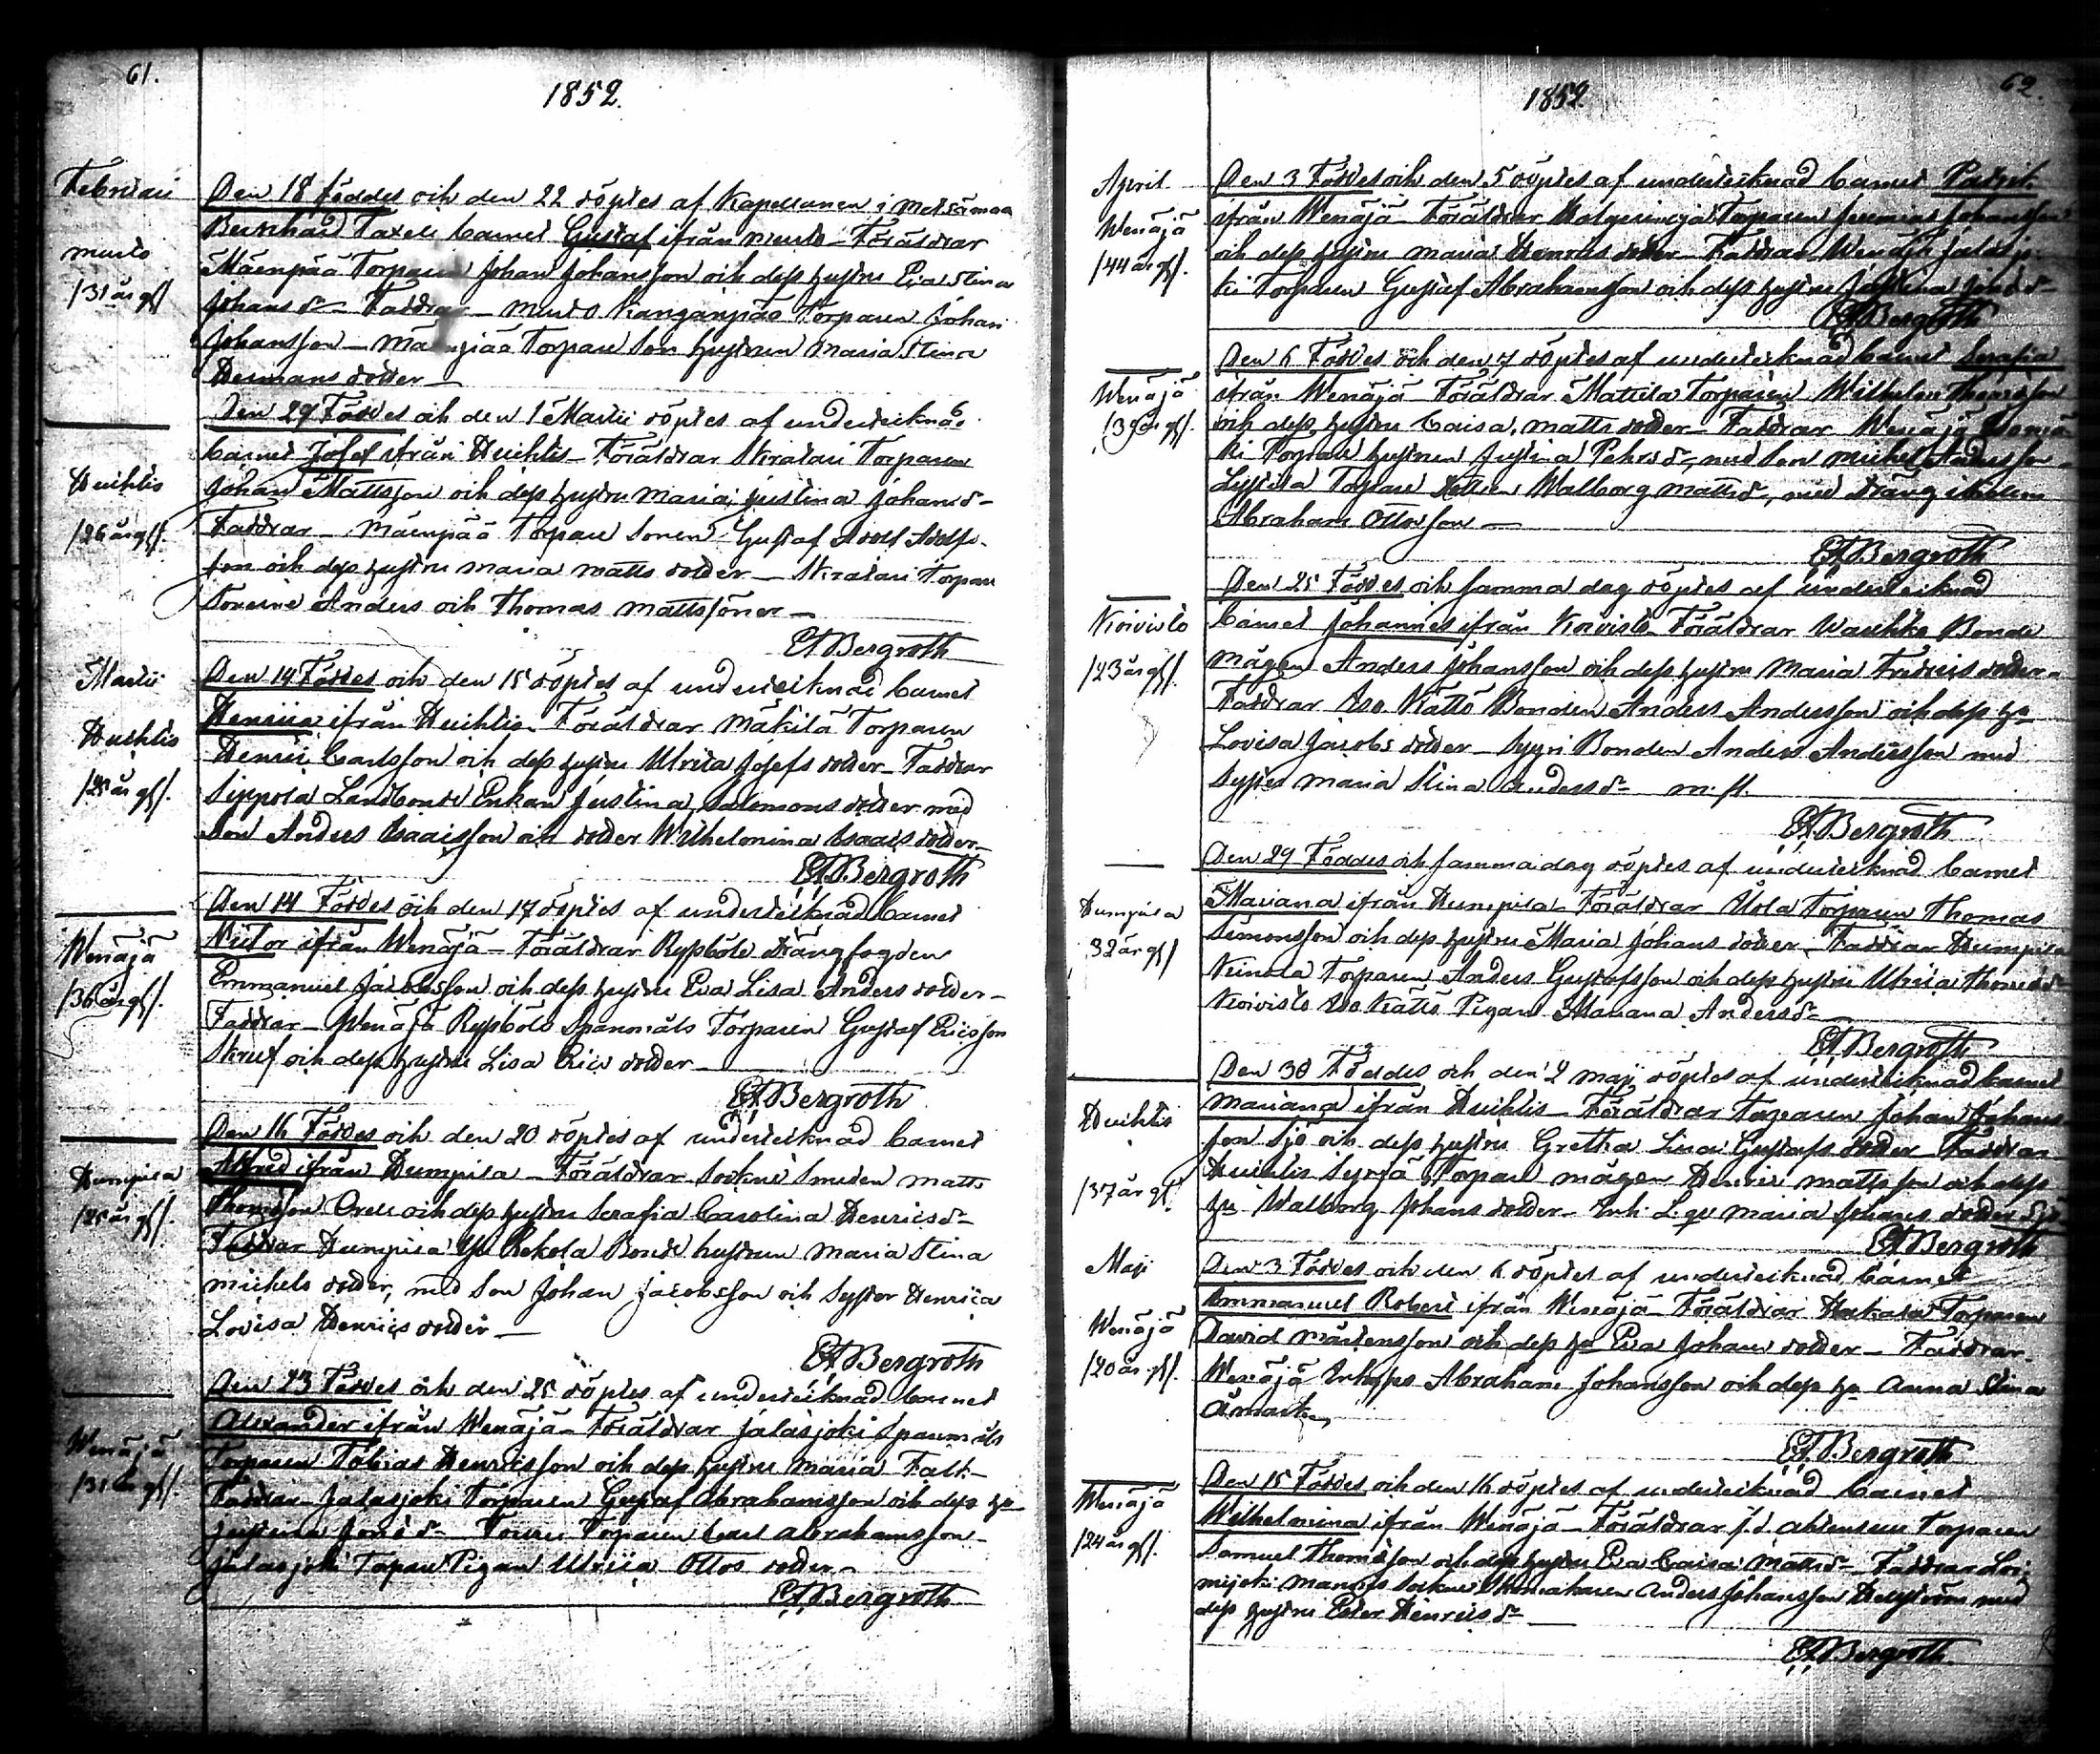 61.
1852.
Februari
Murto
/31 år gl/
Den 18 Föddes och den 22 döptes af Kapellanen i Metsämaa
Bernhard Taxell barnet Gustaf ifrån Murto – Föräldrar
Mäenpää Torparen Johan Johansson och dess hustru Eva Stina
Johans dr – Faddrar – Murto Kangänpää Torparen Johan
Johansson – Mäenpää Torpare Son hustrun Maria Stina
Hermans dotter –
Huihtis
/26 år gl/.
Den 29 Föddes och den 1 Martii döptes af undertecknad
barnet Josef ifrån Huihtis – Föräldrar Skratari Torparen
Johan Mattsson och dess hustru Maria Justina Johans dr –
Faddrar – Mäenpää Torpare Sonen Gustaf Adolf Adolfs-
son och dess hustru Maria Matts dotter – Skratari Torpare
Sönerne Anders och Thomas Mattssöner –
EA Bergroth
Martii
Huihtis
/28 år gl/.
Den 14 Föddes och den 15 döptes af undertecknad barnet
Henrica ifrån Huihtis – Föräldrar Mäkilä Torparen
Henric Carlsson och dess hustru Ulrica Josefs dotter – Faddrar
Sippola Landbonde Enkan Justina Salomons dotter med
Son Anders Isaacsson och dotter Wilhelmina Isaacs dotter –
EA Bergroth
Wenäjä
/36 år gl/.
Den 14 Föddes och den 17 döptes af undertecknad barnet
Victor ifrån Wenäjä – Föräldrar Rypböle Drängfogden
Emmanuel Jacobsson och dess hustru Eva Lisa Anders dotter –
Faddrar – Wenäjä Rypböle Spanmåls Torparen Gustaf Ericsson
Skruf och dess hustru Lisa Erics dotter –
EA Bergroth
Humpila
/25 år gl/.
Den 16 Föddes och den 20 döptes af undertecknad barnet
Alfred ifrån Humpila – Föräldrar Sockne Smeden Matts
Thomasson Orell och dess hustru Serafia Carolina Henrics dr –
Faddrar Humpila Yli Rekola Bonde hustrun Maria Stina
Michels dotter, med Son Johan Jacobsson och Syster Henrica
Lovisa Henrics dotter –
EA Bergroth
Wenäjä
/31 år gl/.
Den 23 Föddes och den 25 döptes af undertecknad barnet
Alexander ifrån Wenäjä – Föräldrar Jalasjoki Spanmåls
Torparen Tobias Henricsson och dess hustru Maria Falk –
Faddrar – Jalasjoki Torparen Gustaf Abrahamsson och dess hu
Justina Jonæ dr – Touru Torparen Carl Abrahamsson –
Jalasjoki Torpare Pigan Ulrica Ottos dotter –
EA Bergroth
62.
1852
April
Wenäjä
/44 år gl/.
Den 3 Föddes och den 5 döptes af undertecknad barnet Patrik
ifrån Wenäjä – Föräldrar Torparen Jeremias Johansson
och dess hustru Maria Henrics dotter – Faddrar Wenäjä Jalasjo-
ki Torparen Gustaf Abrahamsson och dess hustru Justina Jonæ dr
EA Bergroth
Wenäjä
/39 år gl/.
Den 6 Föddes och den 7 döptes af undertecknad barnet Serafia
ifrån Wenäjä – Föräldrar Mattila Torparen Wilhelm Thomasson
och dess hustru Caisa Matts dotter – Faddrar Wenäjä
ki Torpare hustrun Justina Pehrs dr, med Son Michel Andersson –
Torpare Walborg Matts dr, med Dräng
Abraham Ottosson –
EA Bergroth
Koivisto
/23 år gl/.
Den 25 Föddes och samma dag döptes af undertecknad
barnet Johannes ifrån Koivisto – Föräldrar Waihko Bonde
mågen Anders Johansson och dess hustru Maria Fredrics dotter –
Faddrar Iso Kättö Bonden Anders Andersson och dess hu
Lovisa Jacobs dotter – Syyri Bonden Anders Andersson med
Syster Maria Stina Anders dr m. fl.
EA Bergroth
Humpila
32 år gl/
Den 29 Föddes och samma dag döptes af undertecknad barnet
Mariana ifrån Humpila – Föräldrar Uola Torparen Thomas
Simonsson och dess hustru Maria Johans dotter – Faddrar Humpila
Torparen Anders Gustafsson och dess hustru Ulrica Thomæ dr
Koivisto Iso Kättö Pigan Mariana Anders dr –
EA Bergroth
Huihtis
/37 år gl/
Den 30 Föddes och den 2 Maji döptes af undertecknad barnet
Mariana ifrån Huihtis – Föräldrar Torparen Johan Johans
son Sjö och dess hustru Gretha Lisa Gustafs dotter – Faddrar
Huihtis Torpare mågen Henric Mattsson och dess
hu Walborg Johans dotter – Inh. L. qv Maria Johans dotter Sjö
EA Bergroth
Maji
Wenäjä
/20 år gl/.
Den 3 Föddes och den 6 döptes af undertecknad barnet
Emmanuel Robert ifrån Wenäjä – Föräldrar Hakala Torparen
David Mårtensson och dess hu Eva Johans dotter – Faddrar
Wenäjä Inhyses Abraham Johansson och dess hu Anna Stina
EA Bergroth
Wenäjä
/24 år gl/.
Den 15 Föddes och den 16 döptes af undertecknad barnet
Wilhelmina ifrån Wenäjä – Föräldrar Torparen
Samuel Thomasson och dess hustru Eva Caisa Matts dr – Faddrar Loi-
mijoki Mannis Sockne Skomakaren Anders Johansson med
dess hustru Ester Henrics dr –
EA Bergroth